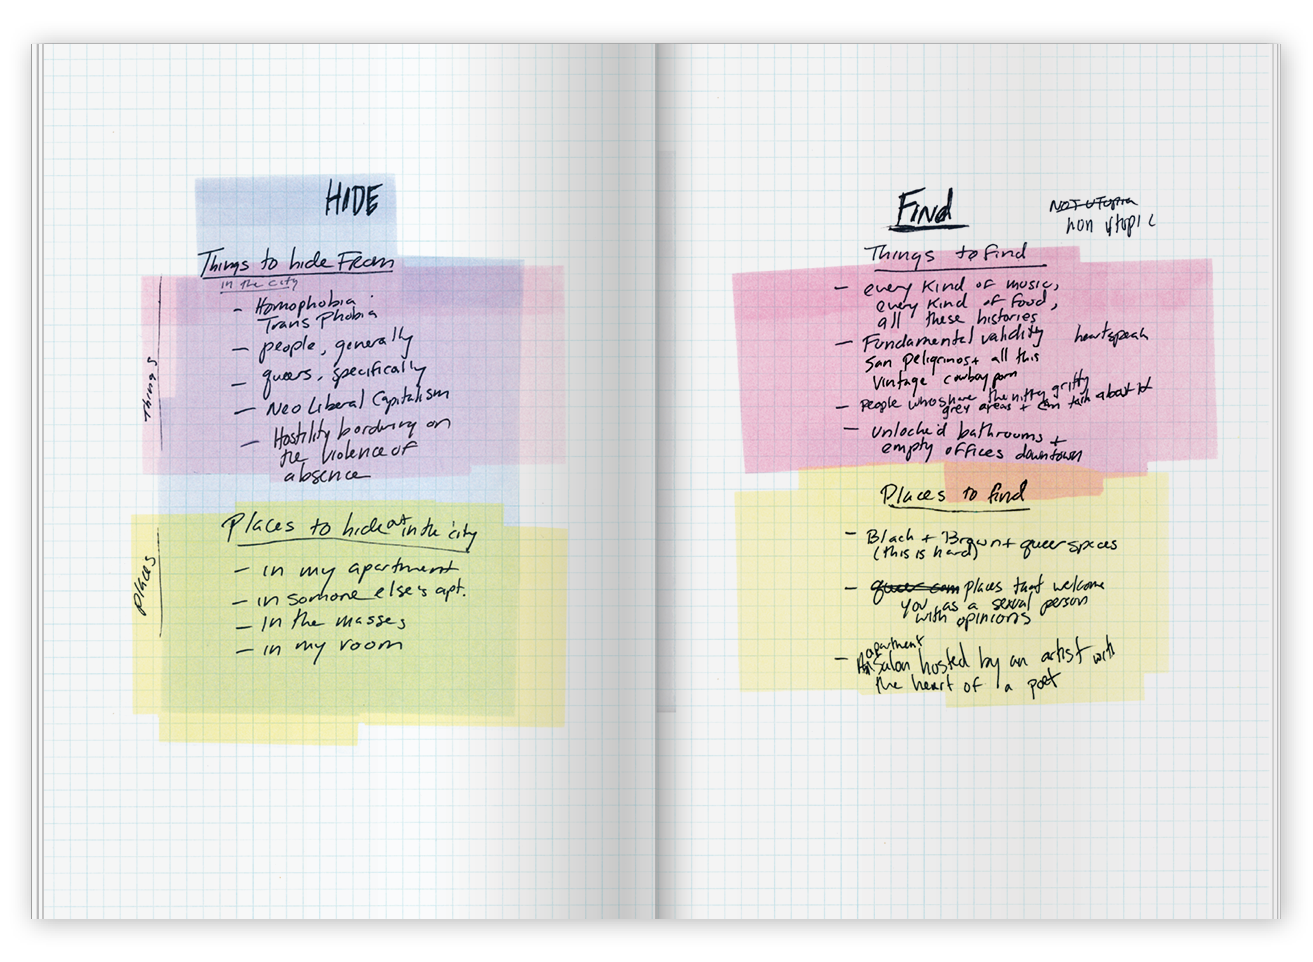 HIDE
Things to hide From
in the city
- Homophobia
Trans Phobia
- people, generally
- queers, specifically
- Neo Liberal Capitalism
- Hostility bordering on
the violence of
absence
Things
Places to hide at in the city
- in my apartment
- in somone else's apt.
- In the masses
- in my room
Places
Find
NOT UTOPIA
non utopic
Things to find
- every kind of music,
every kind of food,
all these histories
- Fundamental validity
heartspeak
San Peligrinos + all this
Vintage cowboy porn
- People who share the nitty gritty
grey areas + can talk about it
- Unlocked bathrooms +
empty offices downtown
Places to find
- Black + Brown + queer spaces
(this is hard)
- queer com places that welcome
you as a sexual person
with opinions
apartment
- Salon hosted by an artist with
the heart of a poet